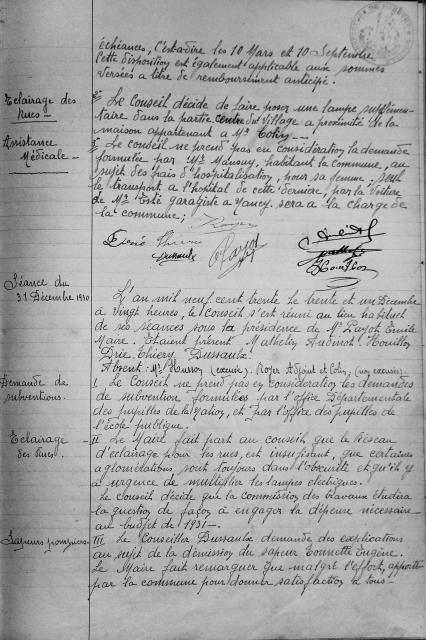 échéances, c'est à dire les 10 Mars et 10 Septembre
Cette disposition est également applicable aux sommes
versées à titre de remboursement anticipé.
Eclairage des
Rues
Le Conseil décide de faire poser une lampe supplémen-
taire dans la partie centre du village à proximité de la
maison appartenant à Mr Colin
Assistance
Médicale
Le Conseil ne prend pas en considération la demande
formulée par Mr habitant la commune, au
sujet des frais d'hospitalisation, pour sa femme. Seul
le transport à l'hôpital de cette dernière, par la voiture
de Mr garagiste à Nancy sera à la charge de
la commune.
Dussaulx
Séance du
31 Décembre 1930
L'an mil neuf cent trente le trente et un Décembre
à vingt heures, le conseil s'est réuni au lieu habituel
de ses séances sous la présidence de Mr Pazot Emile
Maire. Etaient présent. Mathelin Audinot. Houillon
Drie, Thiery, Dussaulx.
Absent: Mr Husson (excusé). Royer Adjoint et Colin, (non excusés)
Demande de
subventions.
I Le Conseil ne prend pas en considération les demandes
de subvention formulées par l'office Départementale
des pupilles de la Nation, et par l'office des pupilles de
l'école publique.
Eclairage
des Rues.
II Le Maire fait part au conseil que le réseau
d'éclairage pour les rues, est insufisant, que certaines
aglomérations, sont toujours dans l'obscurité et qu'il y
a urgence de multiplier les lampes électriques.
Le Conseil décide que la commission des travaux étudira
la question de façon à engager la dépense nécessaire
au budget de 1931
Sapeurs pompiers
III Le Conseiller Dussaulx demande des explications
au sujet de la démission du sapeur Tonnette Eugène.
Le Maire fait remarquer que malgré l'effort, apporté
par la commune pour donner satisfaction à tous